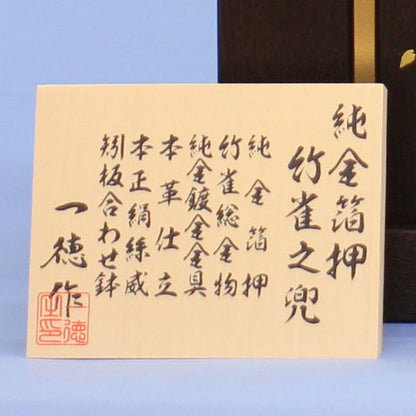 純金箔押
竹雀之兜
純金箔押
竹雀総金物
純金鍍金金具
本革仕立
本正絹絲威
矧板合わせ鉢
一徳作